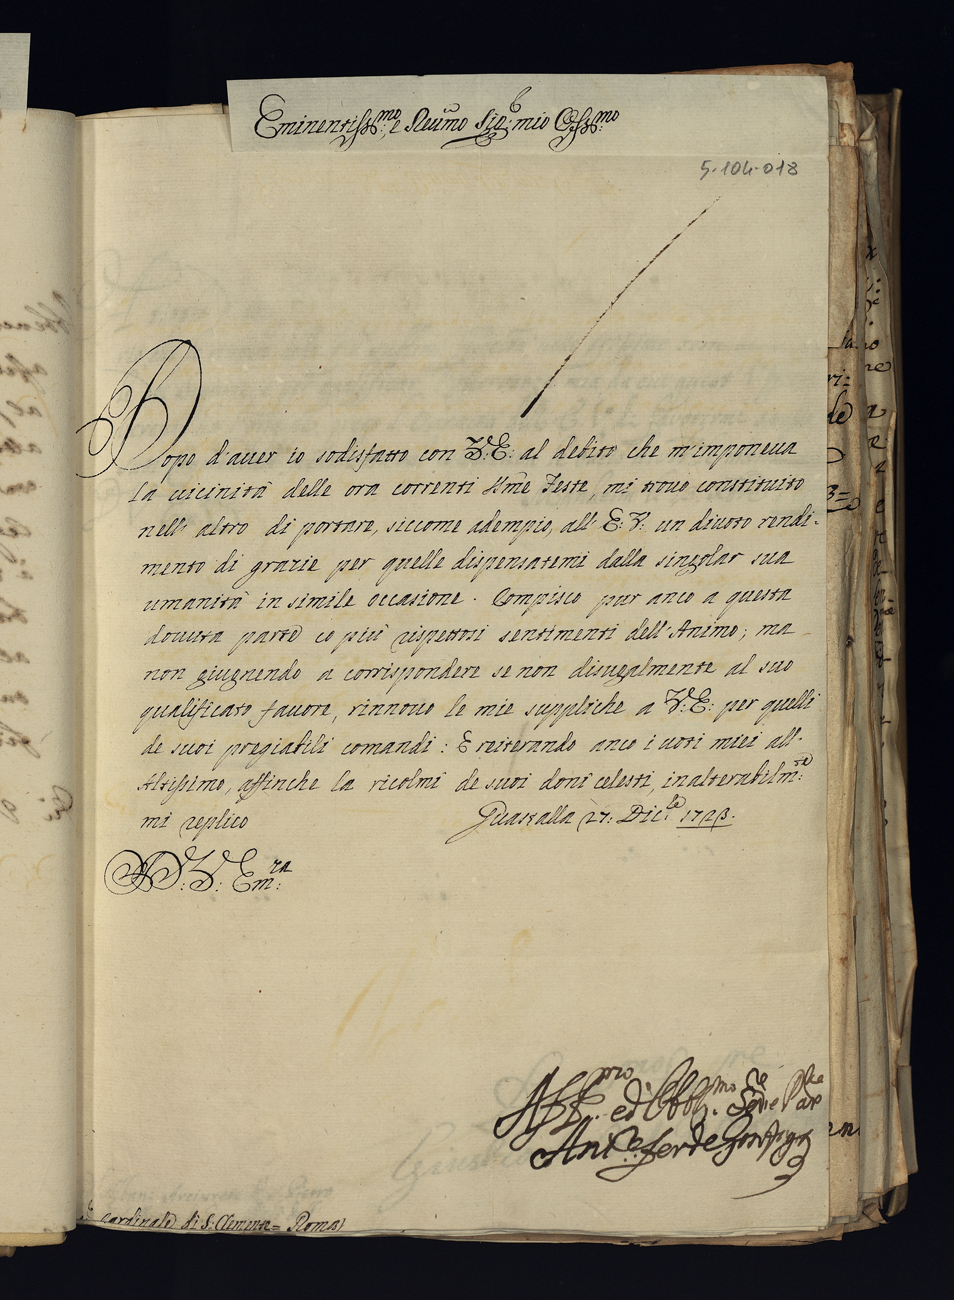 Eminentiss:mo e Reu:mo Sig:r mio Oss:mo
5-104-018
Dopo d'auer io sodisfatto con V:E: al debito che m'imponeua
la uicinità delle ora correnti S:me Feste, mi trouo constituito
nell'altro di portare, siccome adempio, all' E:V: un diuoto rendi-
mento di grazie per quelle dispensatemi dalla singolar sua
umanità in simile occasione. Compisco pur anco a questa
douuta parte co più rispettosi sentimenti dell'Animo; ma
non giugnendo a corrispondere se non disugalmente al suo
qualificato fauore, rinnouo le mie suppliche a V:E: per quelli
de suoi pregiabili comandi: E reiterando anco i uoti miei all'
Altissimo, affinche la ricolmi de suoi doni celesti, inalterabilm:te
mi replico Guastalla 27: Dic:le 1723.
D: V: Em:ra
Aff:mo ed Obblig:mo Se:re
Ant:o Fer:de Gonzaga
Cardinale di S: Clemente = Roma